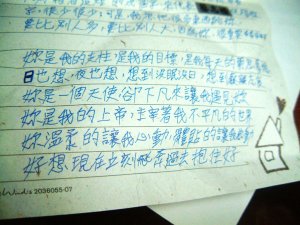 要比別人多,要比別人大,因為妳
妳是我的支柱,是我的目標,是我每天的
日也想、夜也想,想到沒眠沒日,想到
妳是一個天使,卻下凡來讓我遇見妳
妳是我的上帝,主宰著我不平凡的世界
妳溫柔的讓我心動,體貼的讓我感動
好想現在立刻飛奔過去抱住妳
2036055-07